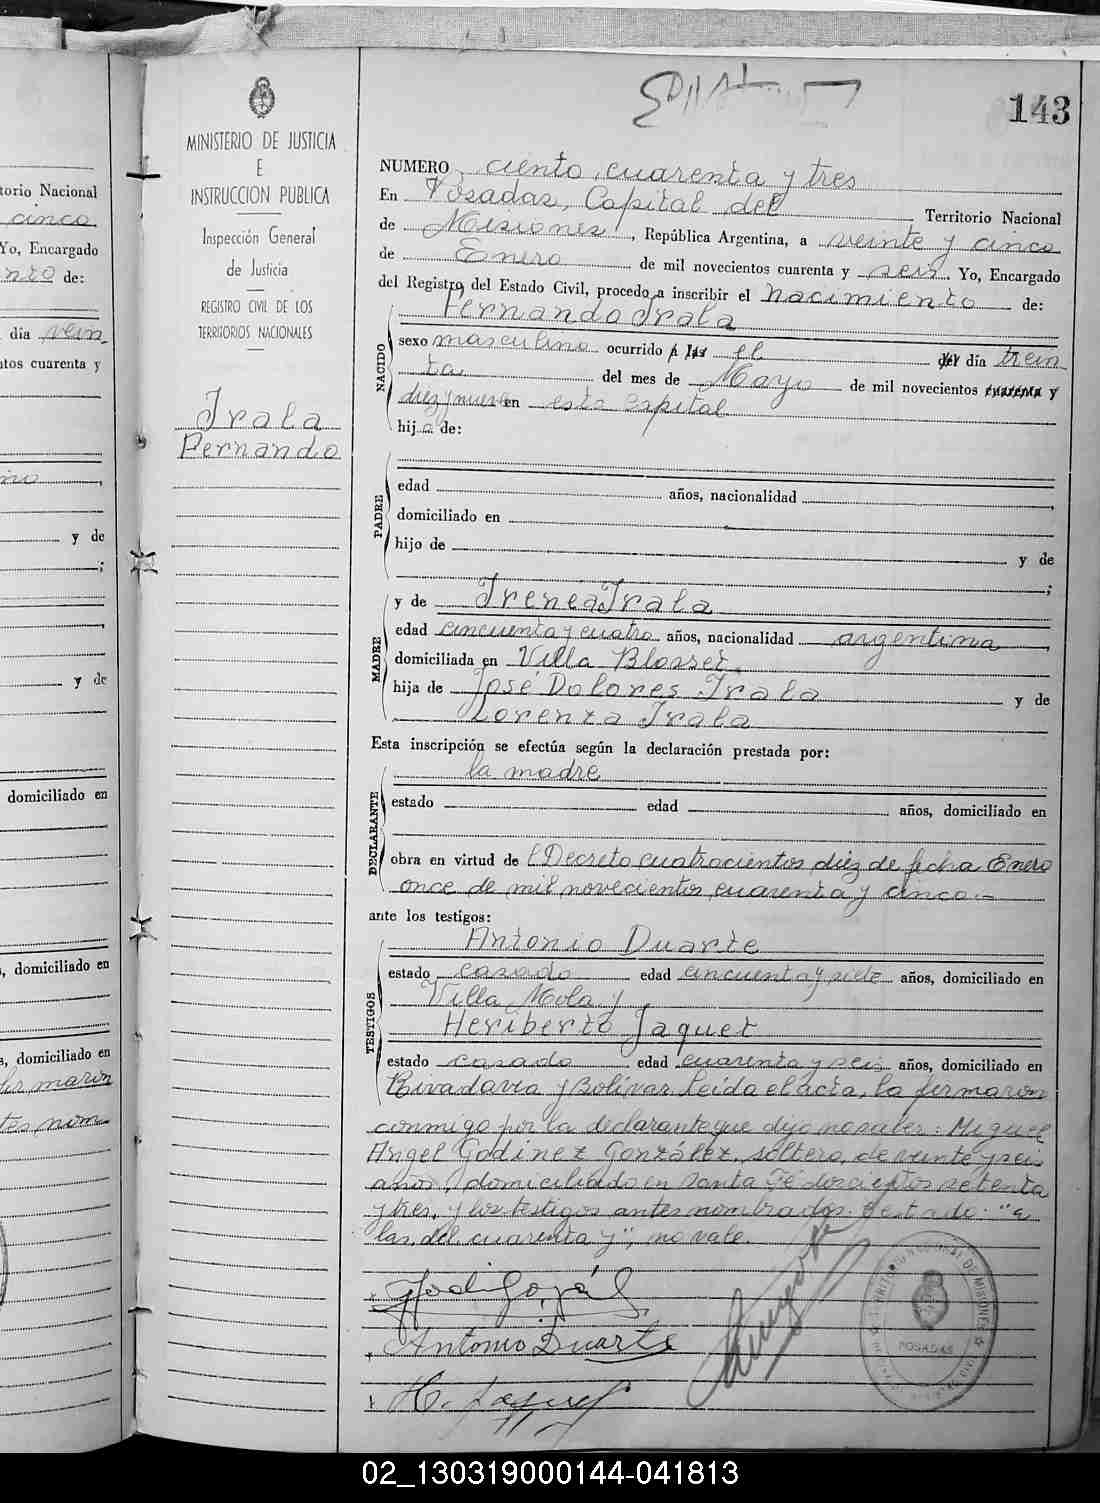 143
MINISTERIO DE JUSTICIA
E
INSTRUCCION PUBLICA
Inspección General
de Justicia
REGISTRO CIVIL DE LOS
TERRITORIOS NACIONALES
Irala
Fernando
torio Nacional
cinco
Yo, Encargado
de:
día vein
ntos cuarenta y
y de
;
y de
domiciliado en
, domiciliado en
s, domiciliado en
NUMERO ciento cuarenta y tres
En Posadas, Capital del Territorio Nacional
de Misiones, República Argentina, a veinte y cinco
de Enero de mil novecientos cuarenta y seis. Yo, Encargado
del Registro del Estado Civil, procedo a inscribir el nacimiento de:
Fernando Irala
NACIDO
sexo masculino ocurrido á las el del día trein
ta del mes de Mayo de mil novecientos cuarenta y
diez y nueve en esta capital
hijo de:
PADRE
edad años, nacionalidad
domiciliado en
hijo de y de
;
MADRE
y de Irenea Irala
edad cincuenta y cuatro años, nacionalidad argentina
domiciliada en Villa Blosset,
hija de José Dolores Irala y de
Lorenza Irala
Esta inscripción se efectúa según la declaración prestada por:
la madre
DECLARANTE
estado edad años, domiciliado en
obra en virtud de Decreto cuatrocientos diez de fecha Enero
once de mil novecientos cuarenta y cinco.-
ante los testigos:
TESTIGOS
Antonio Duarte
estado casado edad cincuenta y siete años, domiciliado en
Villa Mola y
Heriberto Jaquet
estado casado edad cuarenta y seis años, domiciliado en
Rivadavia y Bolívar. Leída el acta, la firmaron
conmigo por la declarante que dijo no saber: Miguel
Angel Godinez González, soltero, de veinte y seis
años, domiciliado en Santa Fé doscientos setenta
y tres, y los testigos antes nombrados. Testado: "a
las, del, cuarenta y", no vale.
Antonio Duarte
H. Jaquet
TERRITORIO NACIONAL DE MISIONES
POSADAS
02_130319000144-041813